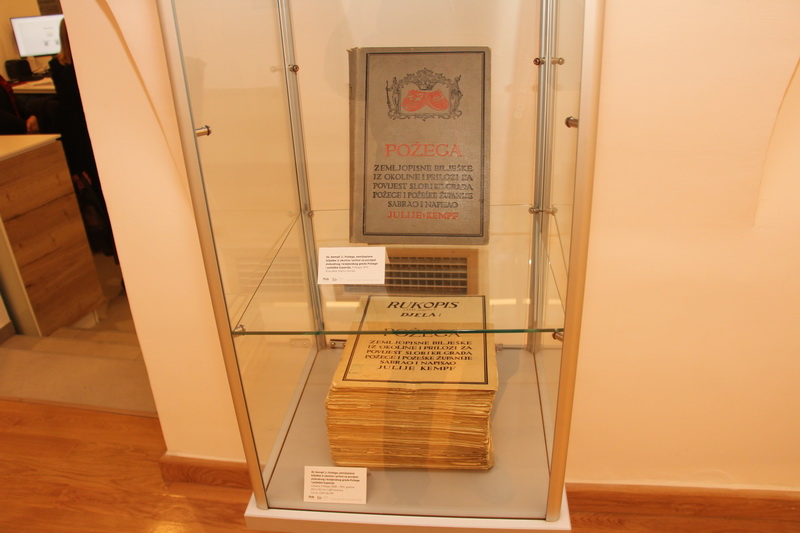 POŽEGA
ZEMLJOPISNE BILJEŠKE
IZ OKOLINE I PRILOZI ZA
POVIJEST SLOB. I KR. GRADA
POŽEGE I POŽEŠKE ŽUPANIJE
SABRAO I NAPISAO
JULIJE KEMPF
RUKOPIS
DJELA:
POŽEGA
ZEMLJOPISNE BILJEŠKE
IZ OKOLINE I PRILOZI ZA
POVIJEST SLOB. I KR. GRADA
POŽEGE I POŽEŠKE ŽUPANIJE
SABRAO I NAPISAO
JULIJE KEMPF